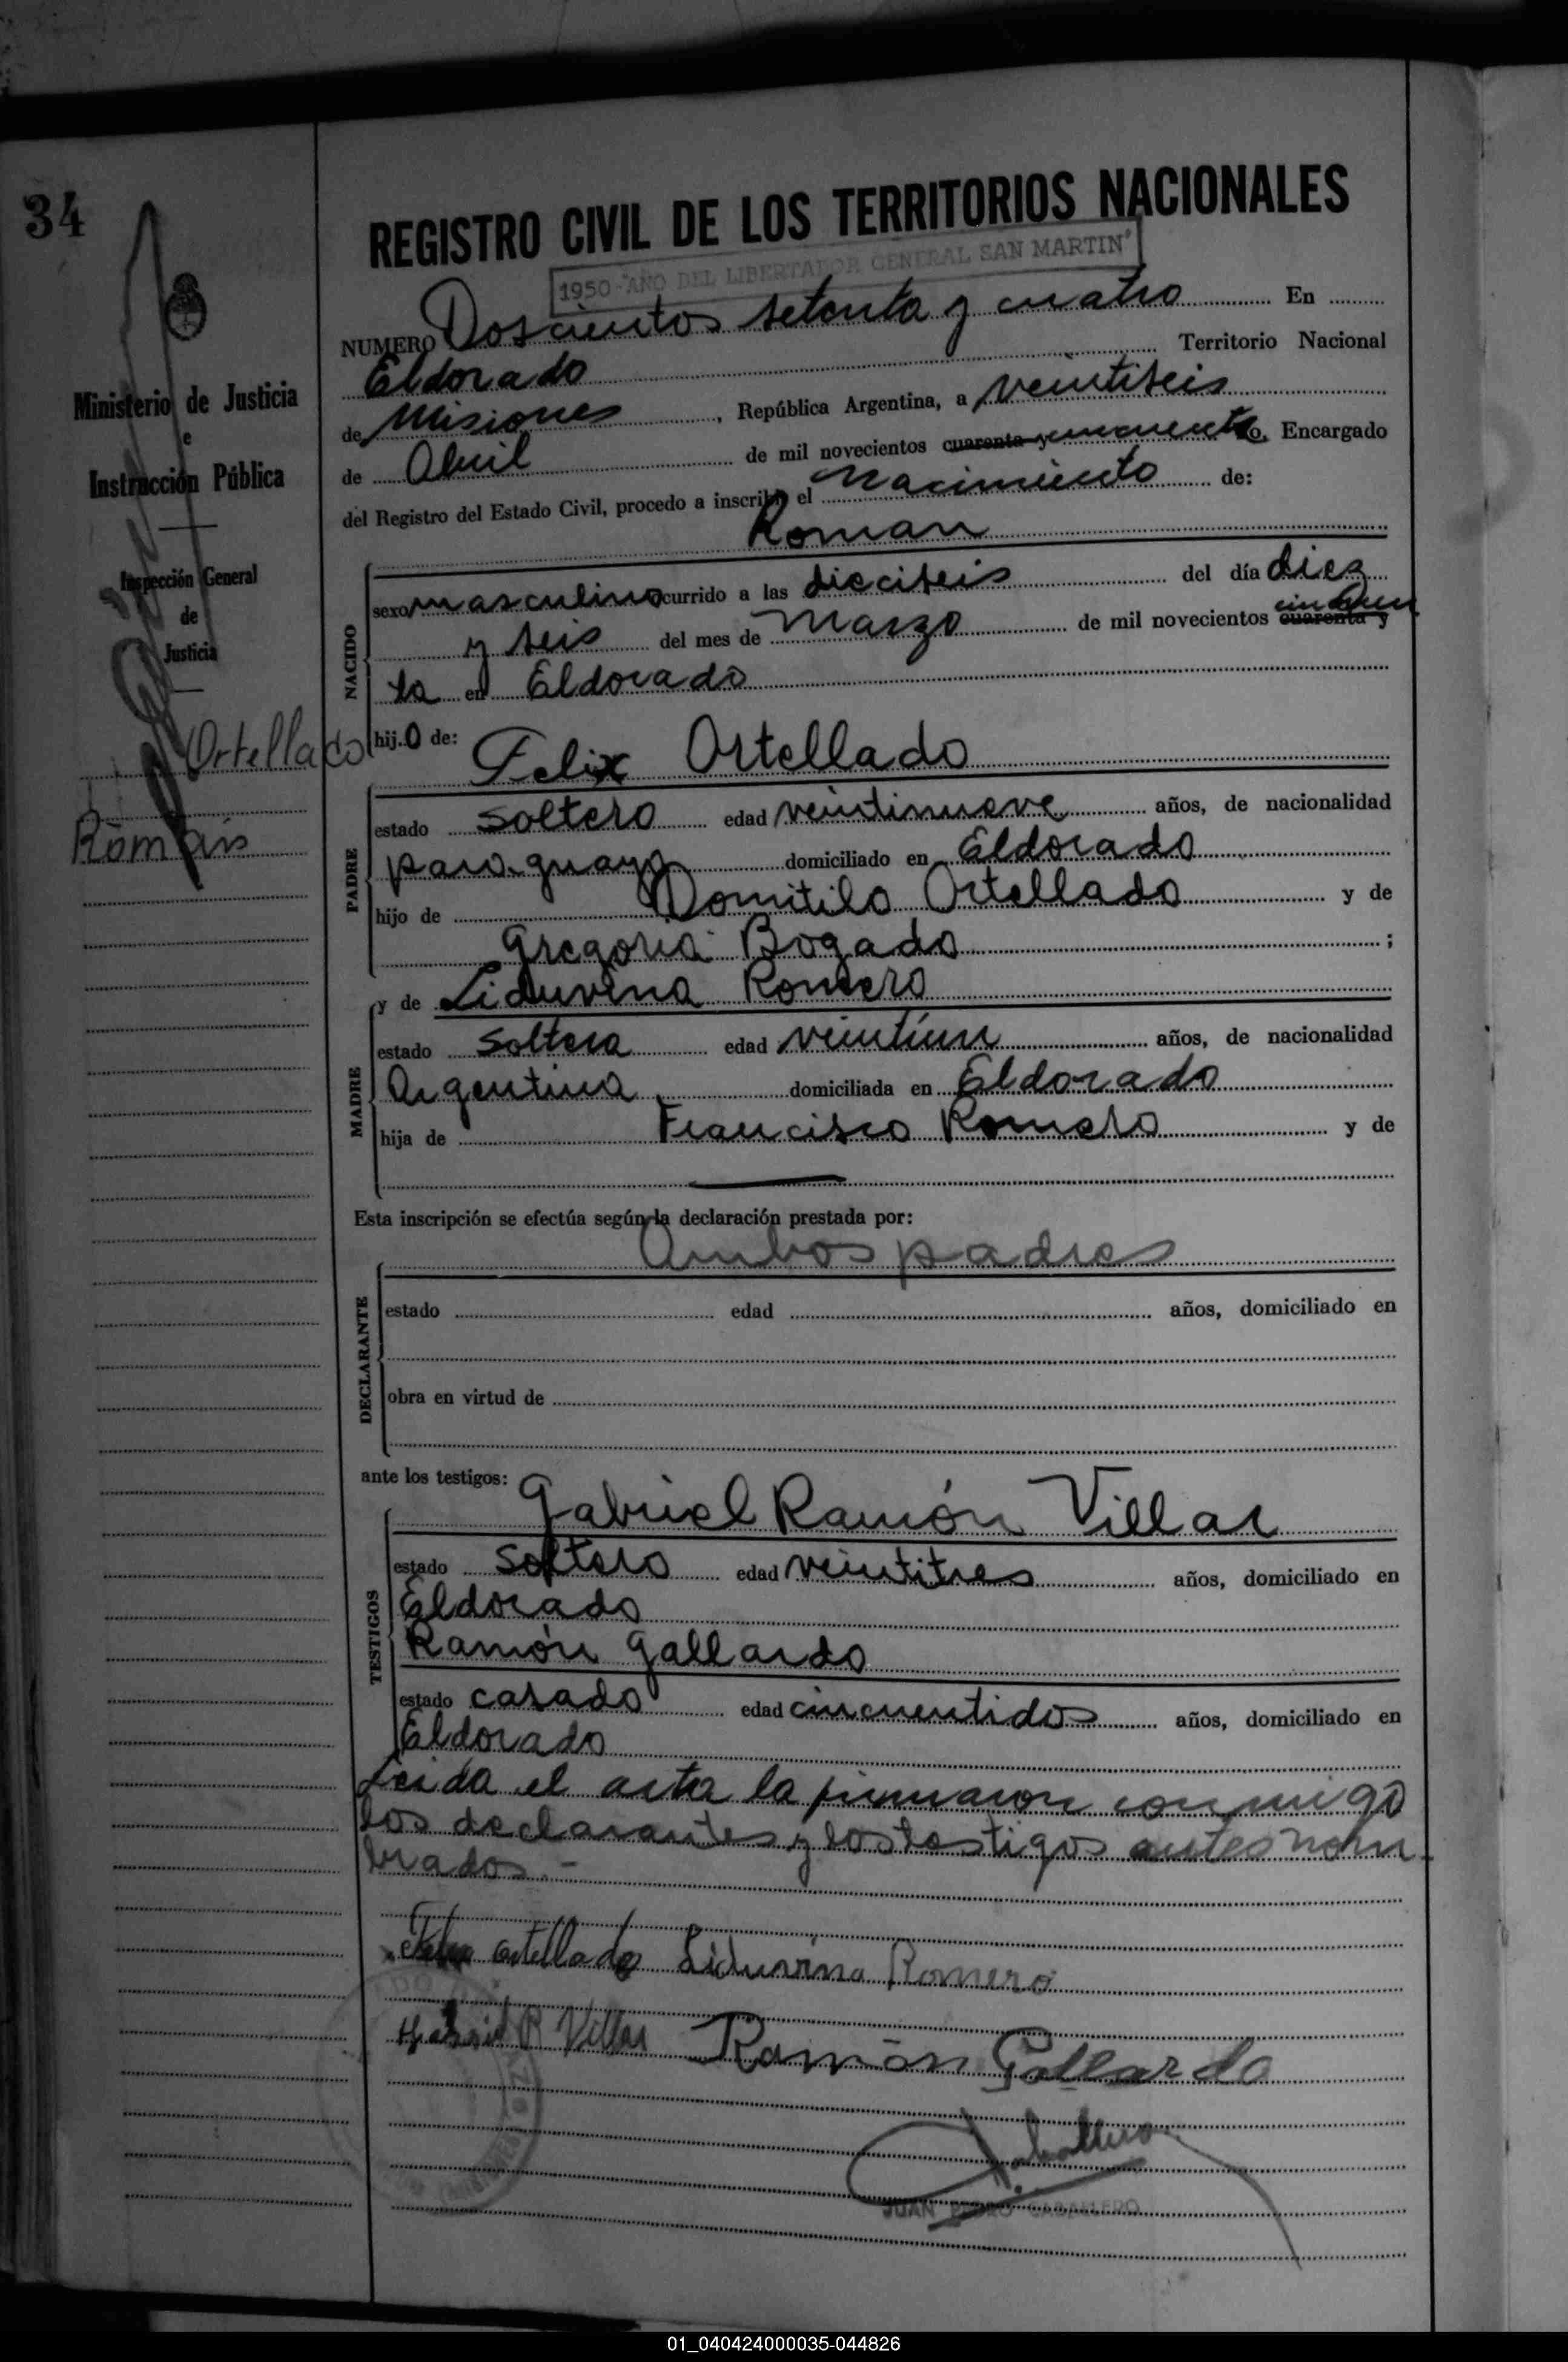 34
Ministerio de Justicia
e
Instrucción Pública
Inspección General
de
Justicia
Ortellado
Román
REGISTRO CIVIL DE LOS TERRITORIOS NACIONALES
1950 "AÑO DEL LIBERTADOR GENERAL SAN MARTIN"
NUMERO Doscientos setenta y cuatro En
Eldorado Territorio Nacional
de Misiones, República Argentina, a veintiseis
de Abril de mil novecientos cuarenta y cincuenta o, Encargado
del Registro del Estado Civil, procedo a inscribir el Nacimiento de:
Roman
NACIDO
sexo masculino ocurrido a las dieciseis del día diez
y seis del mes de Marzo de mil novecientos cuarenta y cincuen
ta en Eldorado
hijo de: Felix Ortellado
PADRE
estado soltero edad veintinueve años, de nacionalidad
paraguaya domiciliado en Eldorado
hijo de Domitilo Ortellado y de
Gregoria Bogado ;
MADRE
y de Liduvina Romero
estado soltera edad veintiun años, de nacionalidad
Argentina domiciliada en Eldorado
hija de Francisco Romero y de
Esta inscripción se efectúa según la declaración prestada por:
Ambos padres
DECLARANTE
estado edad años, domiciliado en
obra en virtud de
ante los testigos: Gabriel Ramón Villar
TESTIGOS
estado soltero edad veintitres años, domiciliado en
Eldorado
Ramón Gallardo
estado casado edad cincuentidos años, domiciliado en
Eldorado
Leida el acta la firmaron conmigo
los declarantes y los testigos antes nom-
brados.-
Felix Ortellado Liduvina Romero
Gabriel R Villar Ramón Gallardo
Caballero
JUAN PEDRO CABALLERO
01_040424000035-044826